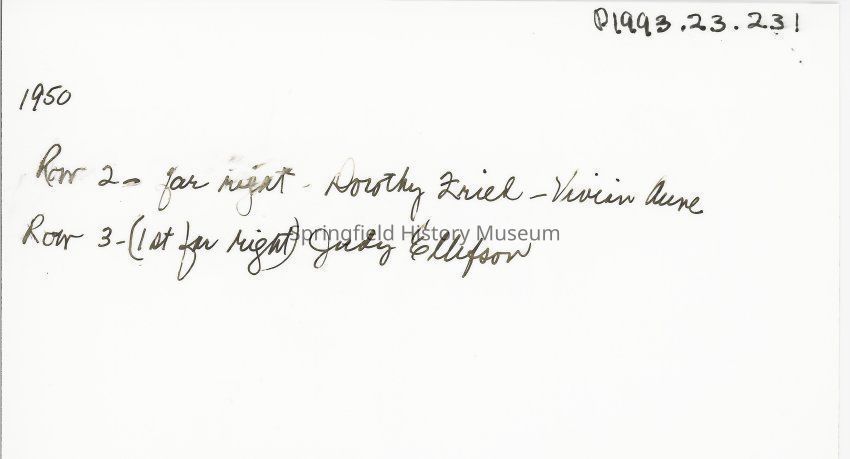 P1993.23.231
1950
Row 2 - far right - Dorothy Fried - Vivian Aune
Row 3 - (1st far right) Judy Ellefson
Springfield History Museum